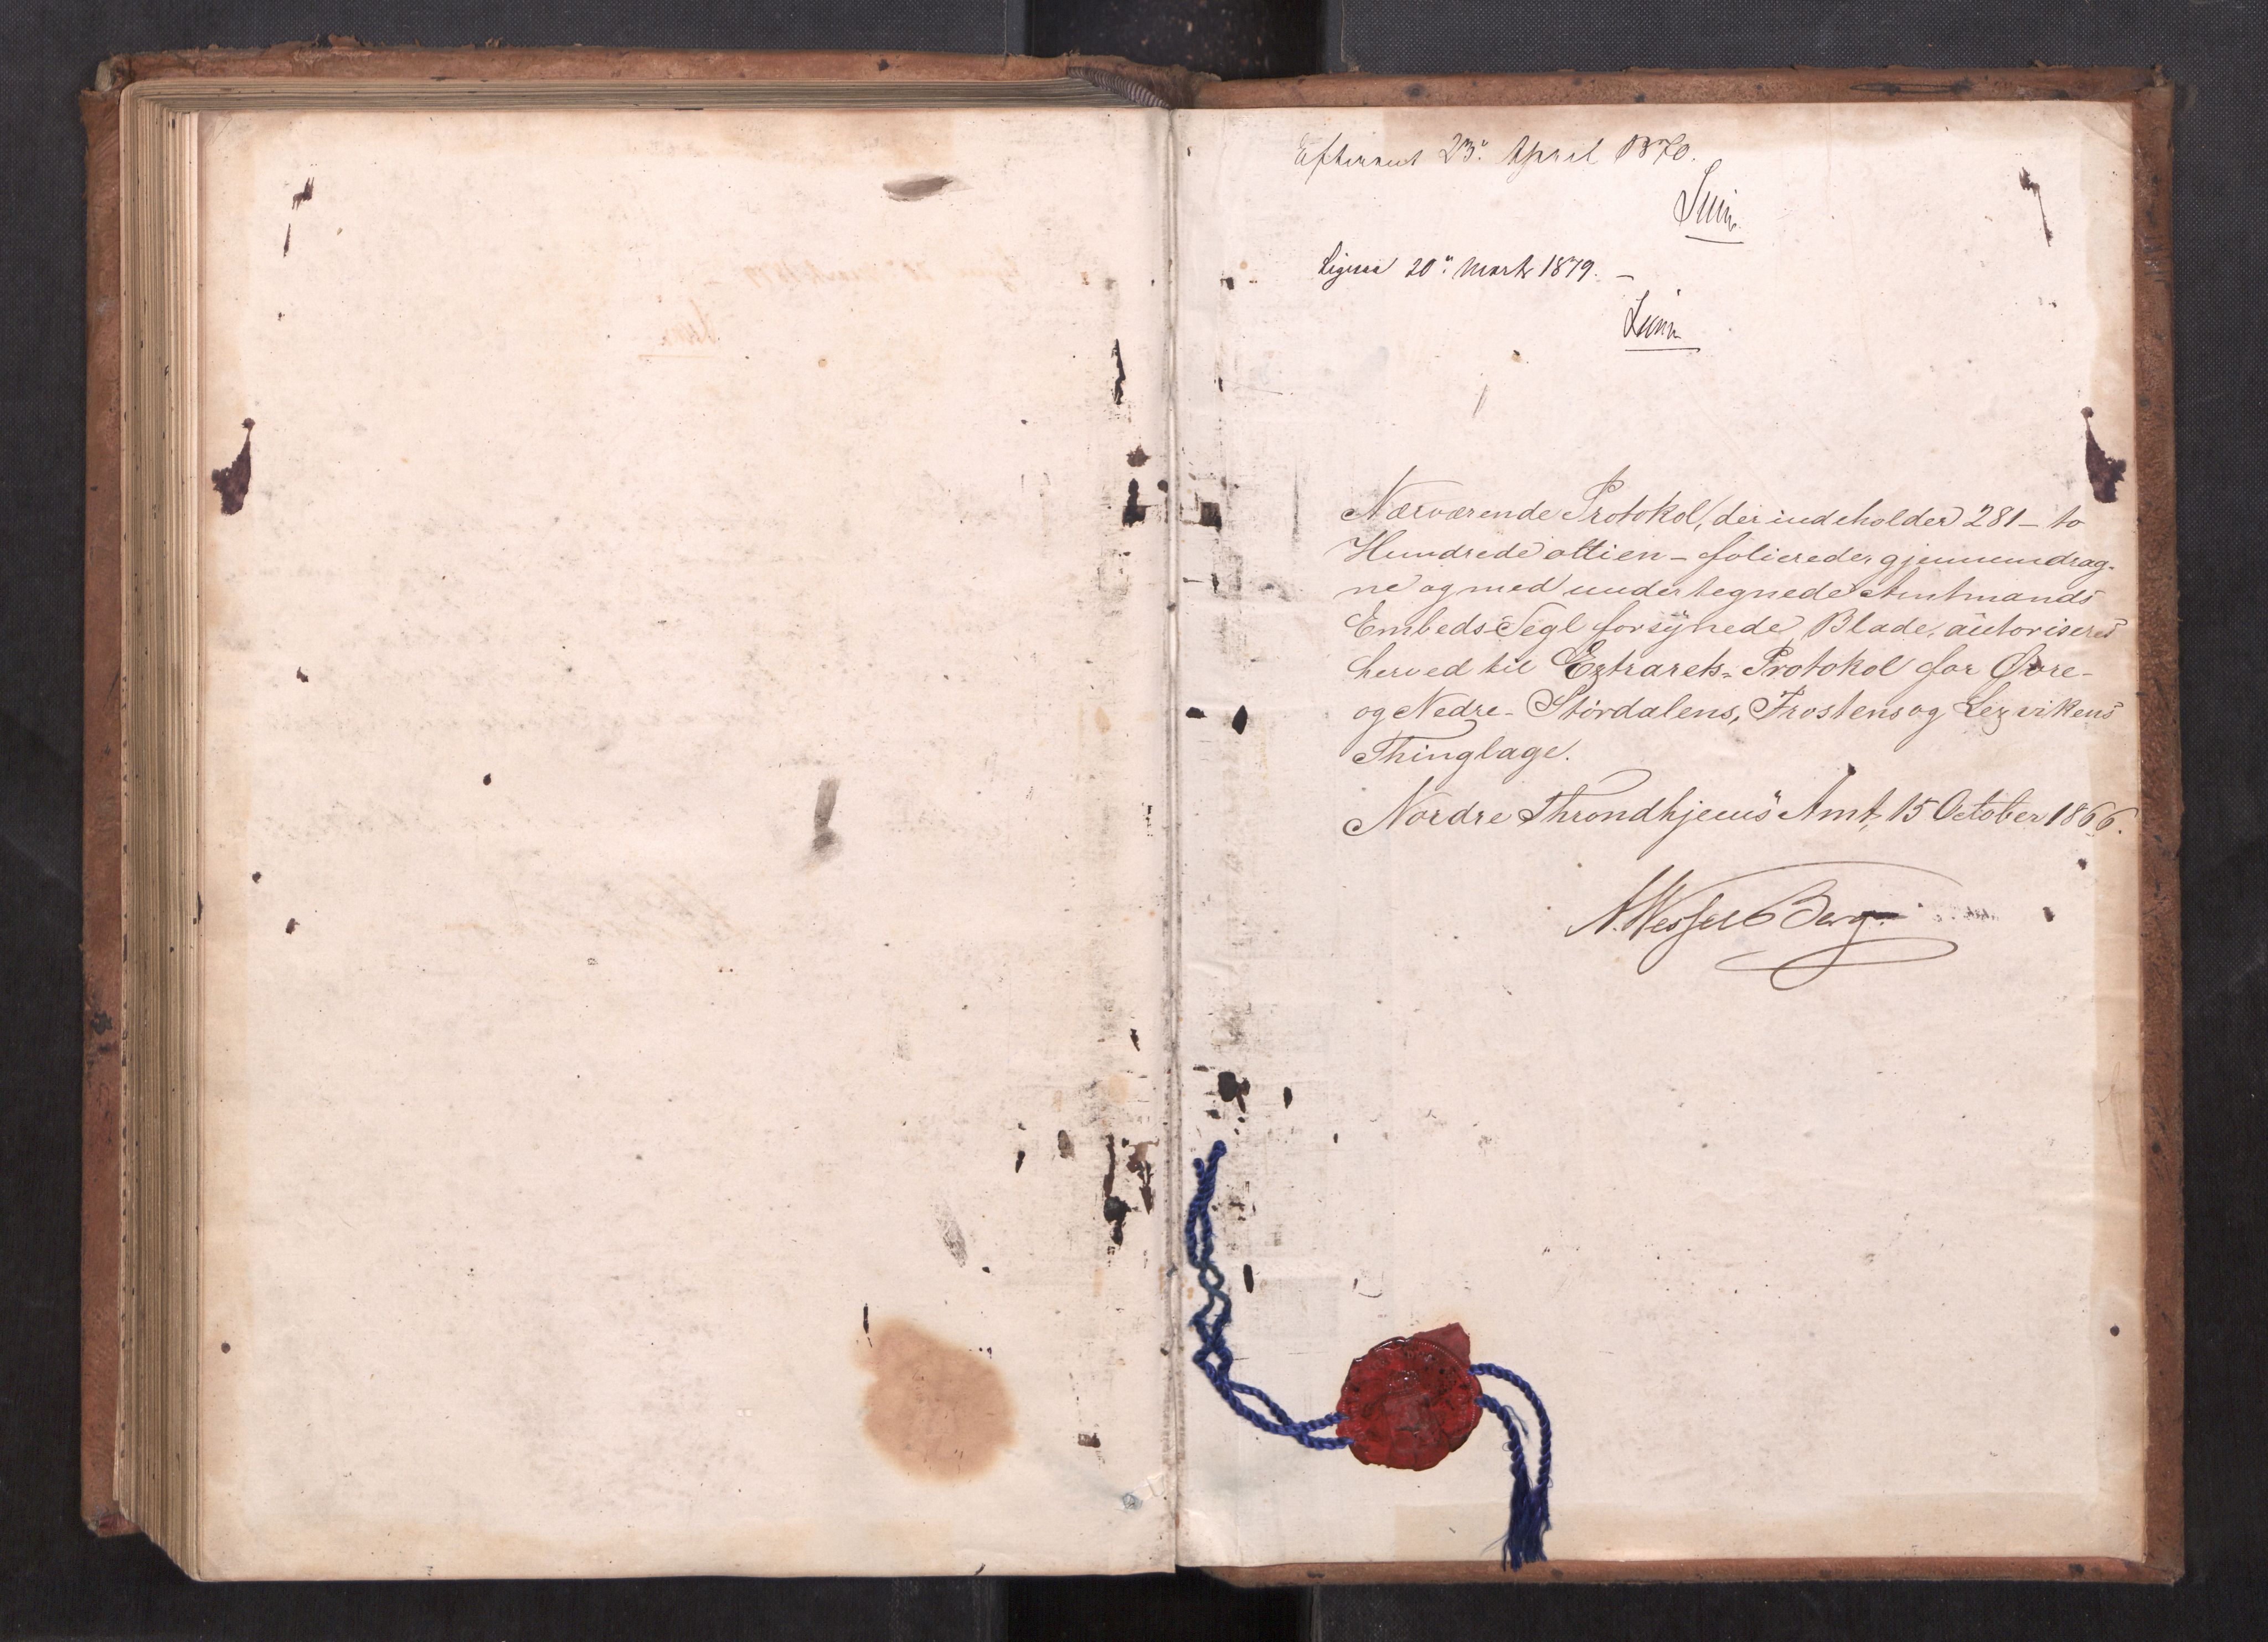 Efterseet 23" April 1870.
Ligesaa 20" Marts 1879. –
Nærværende Protokol, der indeholder 281 – to
Hundrede ottien – folierede, gjennemdrag-
ne og med undertegnede Amtmands
Embeds-Segl forsynede Blade, autoriseres
herved til Extrarets-Protokol for Øvre-
og Nedre- Stördalens, Frostens og Lexvikens
Thinglage.
Nordre Throndhjems Amt, 15 October 1866.
N. Wessel Berg.